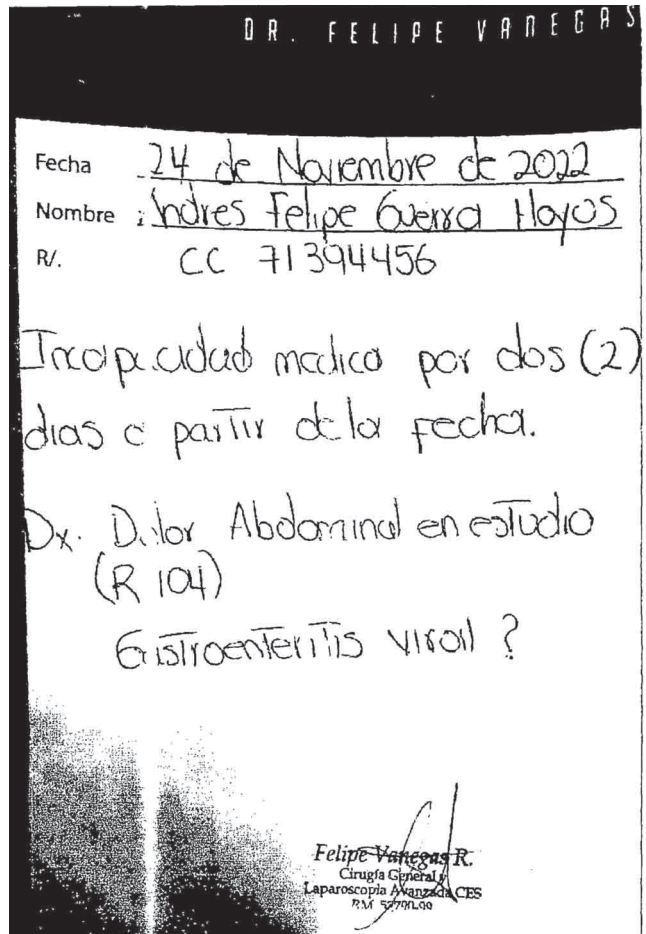 DR. FELIPE VANEGAS
Fecha 24 de Noviembre de 2022
Nombre : Andres Felipe Guerra Hoyos
R/. CC 71394456
Incapacidad medica por dos (2)
dias a partir de la fecha.
Dx. Dolor Abdominal en estudio
(R 104)
Gastroenteritis viral ?
Felipe Vanegas R.
Cirugía General y
Laparoscopia Avanzada CES
RM